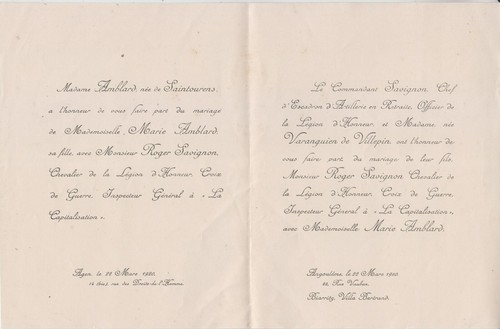 Madame Amblard, née de Saintourens,
a l'honneur de vous faire part du mariage
de Mademoiselle Marie Amblard,
sa fille, avec Monsieur Roger Savignon,
Chevalier de la Légion d'Honneur, Croix
de Guerre, Inspecteur Général à « La
Capitalisation ».
Agen, le 22 Mars 1920.
rue des Droits-de-l'Homme.
Le Commandant Savignon, Chef
d'Escadron d'Artillerie en Retraite, Officier de
la Légion d'Honneur, et Madame, née
Varanguien de Villepin ont l'honneur de
vous faire part du mariage de leur fils,
Monsieur Roger Savignon Chevalier de
la Légion d'Honneur, Croix de Guerre,
Inspecteur Général à « La Capitalisation »,
avec Mademoiselle Marie Amblard.
Angoulême, le 22 Mars 1920.
22, Rue Vauban.
Biarritz, Villa Bertrand.